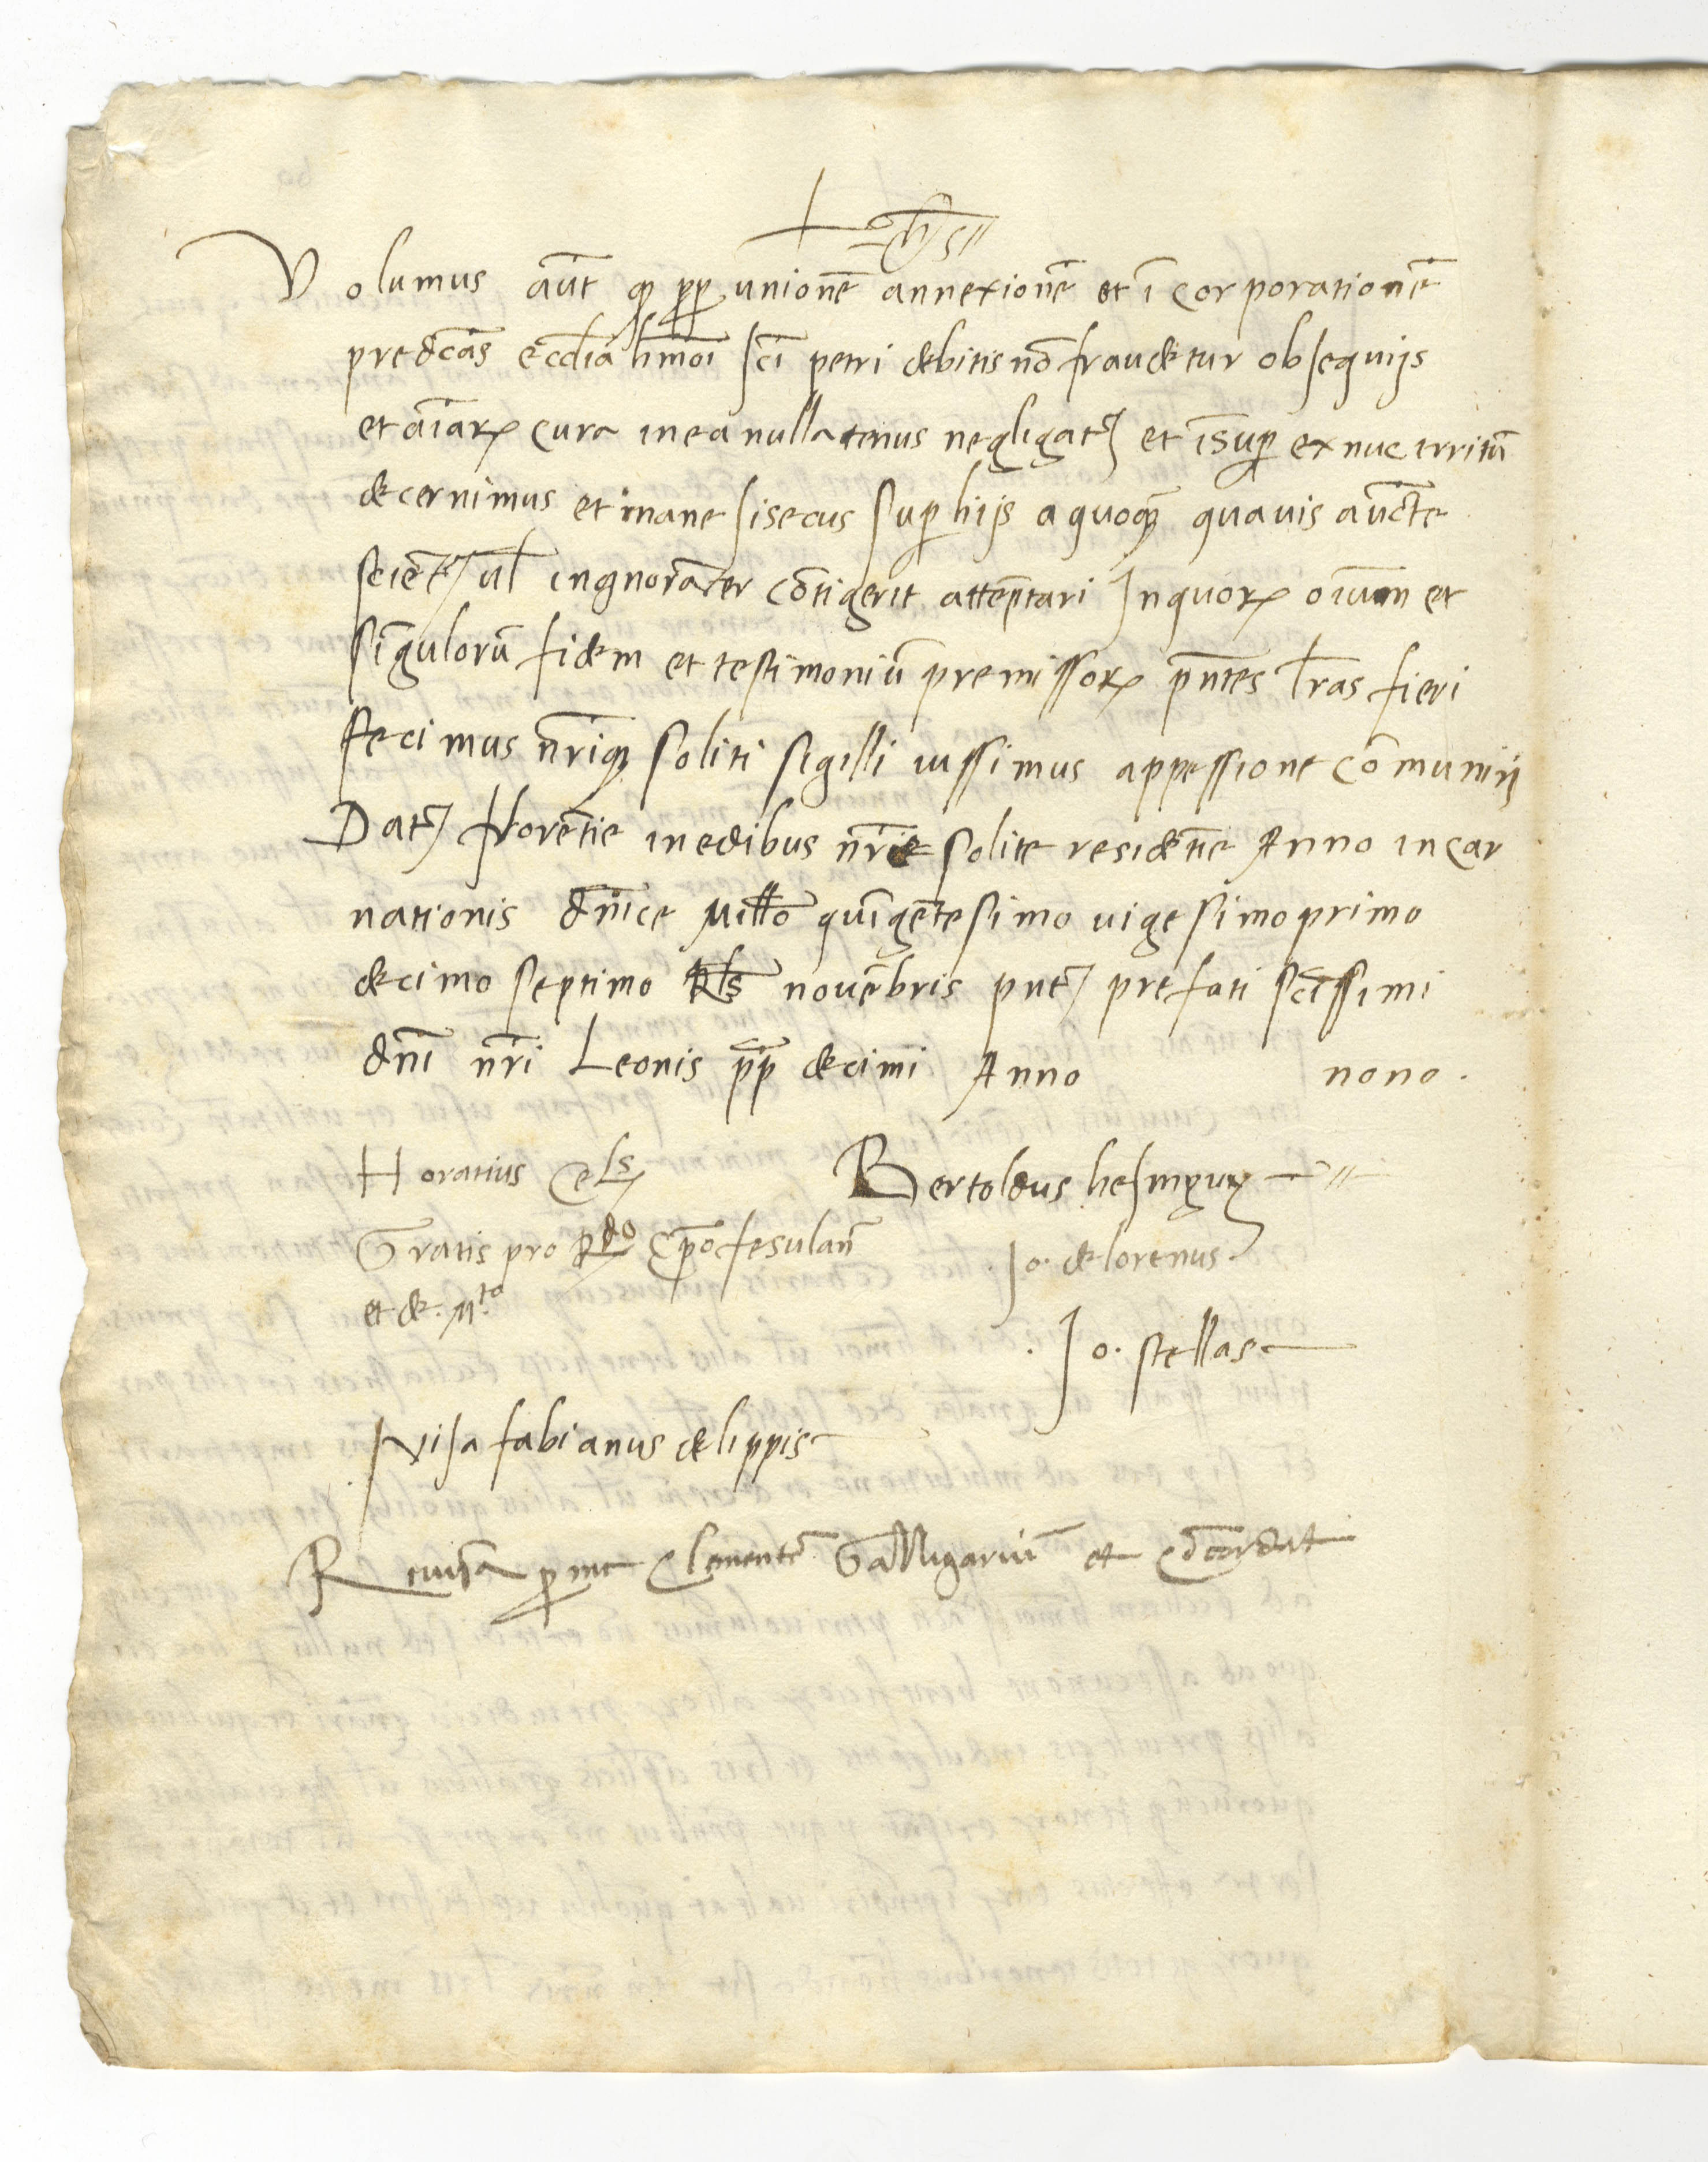 + yhs
Volumus aūt qꝫ ꝓpꝑ unionē annexionē et ī corporationē
predc̄as eccl̄ia hm̄oi sc̄i petri debitis nō fraudetur obsequijs
et aīarꝝ cura in ea nullatenus negligatꝰ et īsuꝑ ex nūc irritū
decernimus et inane si secus suꝑ hijs a quoqꝫ quavis auct̄e
sciēt̄ ul̄ ingnorāter cōtigerit attēptari In quorꝝ oīum et
sīgulorū fidem et testimoniū premissorꝝ pn̄tes l̄ras fieri
fecimus nr̄iqꝫ soliti sigilli iussimus appessione cōmuniri
Datꝰ florētie in edibus nr̄ie solite residētie Anno incar
nationis dn̄ice Mill̄o quīgētesimo vigesimoprimo
decimo septimo kl̄s novēbris pntꝰ prefati sc̄issimi
dn̄i nr̄i Leonis pp̄ decimi Anno nono.
Horatius Cels
Bertoldus
Gratis pro Rdo Ep̄o fesulan̄
Jo. de lorenus
et de mto
Jo. stellas
Visa fabianus de lippis
Revisa ꝑ me Clementē Galligariū et cōcordat